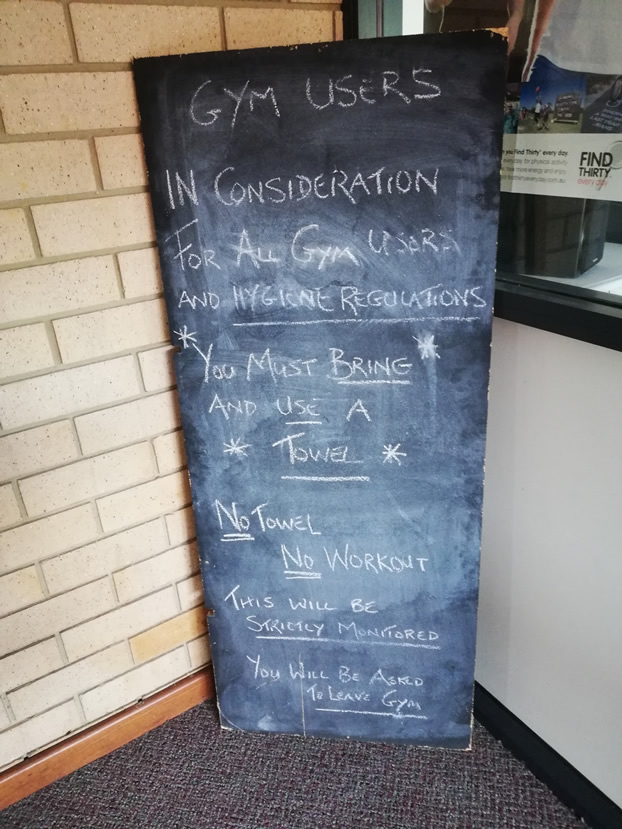 GYM USERS
IN CONSIDERATION
FOR ALL GYM USERS
AND HYGIENE REGULATIONS
* YOU MUST BRING *
AND USE A
* TOWEL *
NO TOWEL
NO WORKOUT
THIS WILL BE
STRICTLY MONITORED
YOU WILL BE ASKED
TO LEAVE GYM
you Find Thirty® every day
everyday for physical activity
more energy and enjoy
FIND
THIRTY
every day